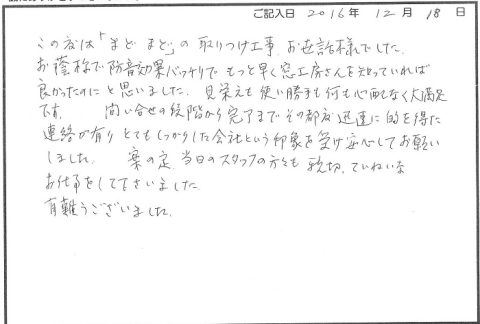 ご記入日 2016年 12月 18日
この度は「まどまど」の取りつけ工事、お世話様でした。
お蔭様で防音効果バッチリで もっと早く窓工房さんを知っていれば
良かったのにと思いました。見栄えも使い勝手も何も心配なく大満足
です。 問い合せの段階から完了まで その都度迅速に的を得た
連絡が有り とてもしっかりした会社という印象を受け安心してお願い
しました。 案の定、当日のスタッフの方々も親切、ていねいな
お仕事をして下さいました。
有難うございました。